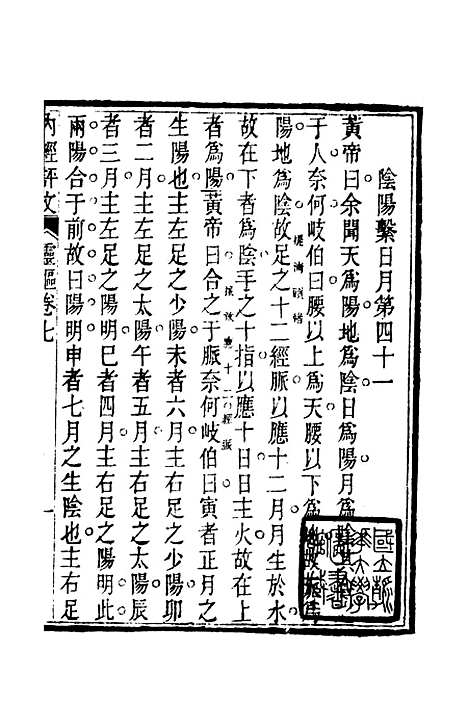 陰陽繫日月第四十一
黃帝曰余聞天爲陽地爲陰日爲陽月爲陰其
于人奈何岐伯曰腰以上爲天腰以下爲地故天爲
陽地爲陰故足之十二經脈以應十二月月生於水
故在下者爲陰手之十指以應十日日主火故在上
者爲陽黃帝曰合之于脈奈何岐伯曰寅者正月之
生陽也主左足之少陽未者六月主右足之少陽卯
者二月主左足之太陽午者五月主右足之太陽辰
者三月主左足之陽明巳者四月主右足之陽明此
兩陽合于前故曰陽明申者七月之生陰也主右足
內經評文
靈樞卷七
一